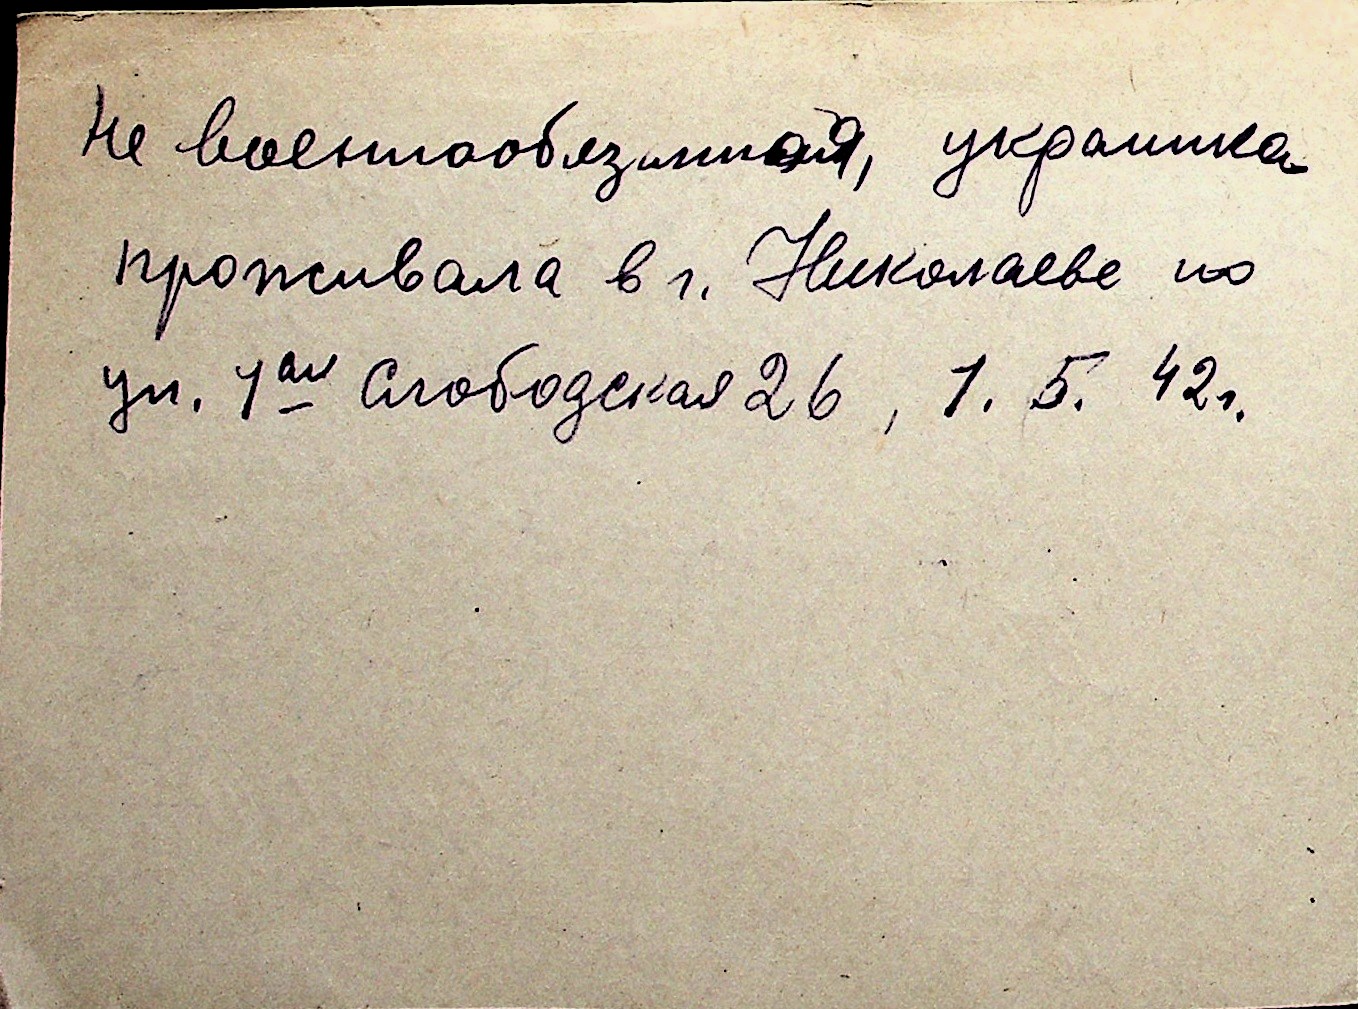 Не военнообязанная, украинка
проживала в г. Николаеве по
ул. 1ая Слободская 26, 1. 5. 42г.